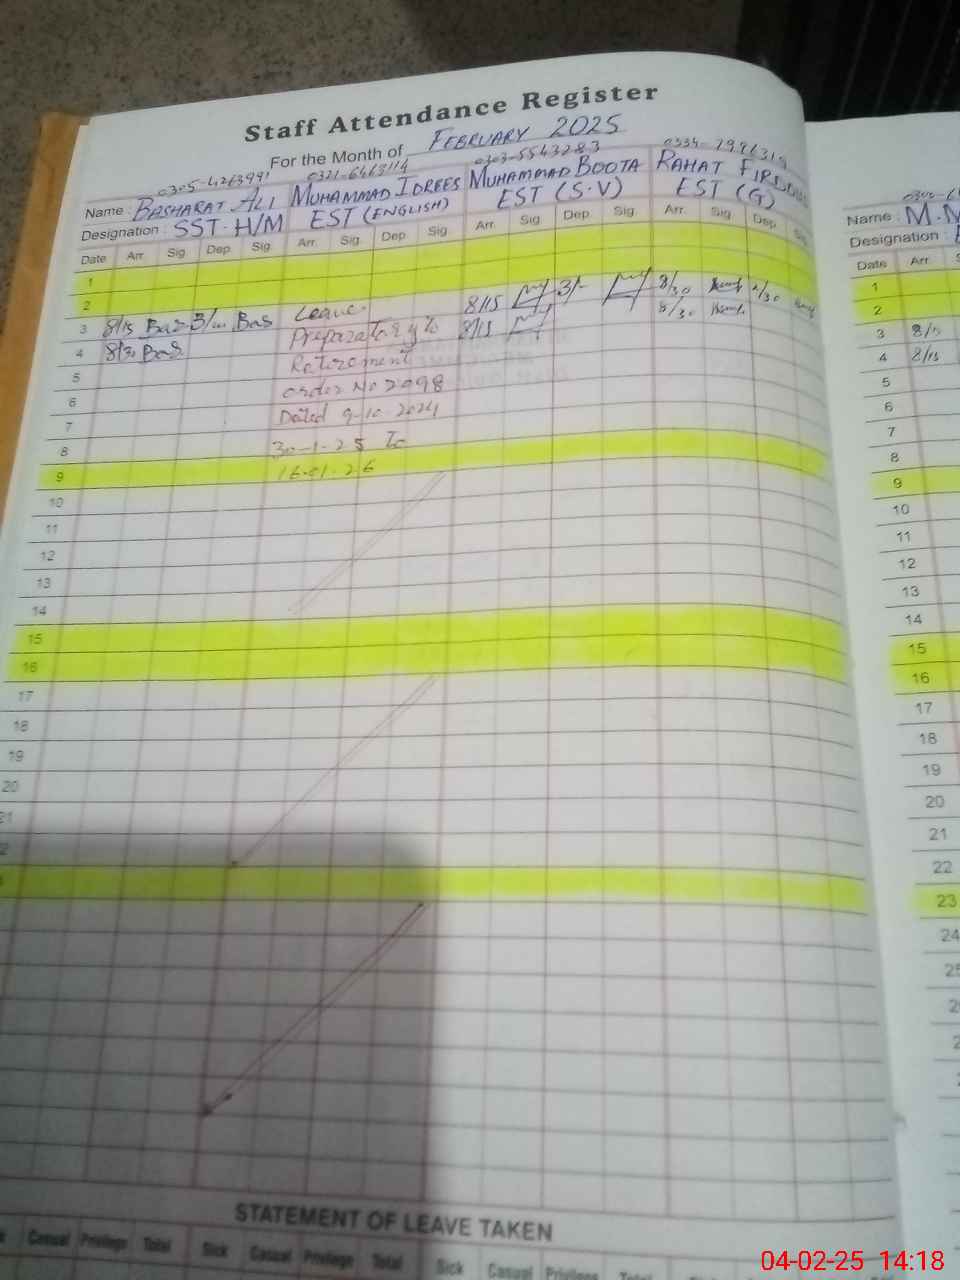 Staff Attendance Register
For the Month of FEBRUARY 2025
0305-4263991 0321-6463114 0303-5543283 0334-
Name: BASHARAT ALI MUHAMMAD IDREES MUHAMMAD BOOTA RAHAT
Designation: SST H/M EST (ENGLISH) EST (S.V) EST (G)
Date Arr. Sig Dep Sig Arr. Sig Dep Sig Arr. Sig Dep. Sig Arr. Sig Dep. Sig
1
2
3 8/15 Bas Bas Leave 8/15 3/- 8/30
4 8/30 Bas Preparatory to 8/15 8/30
5 Retirement
6 order No 2098
7 Dated 9-10-2024
8 30-1-25 To
9 16.01.26
10
11
12
13
14
15
16
17
18
19
20
21
2
STATEMENT OF LEAVE TAKEN
Casual Privilege Total Sick Casual Privilege Total Sick Casual Privilege Total
Name: M.
Designation:
Date Arr.
1
2
3 8/15
4 8/15
5
6
7
8
9
10
11
12
13
14
15
16
17
18
19
20
21
22
23
24
25
04-02-25 14:18